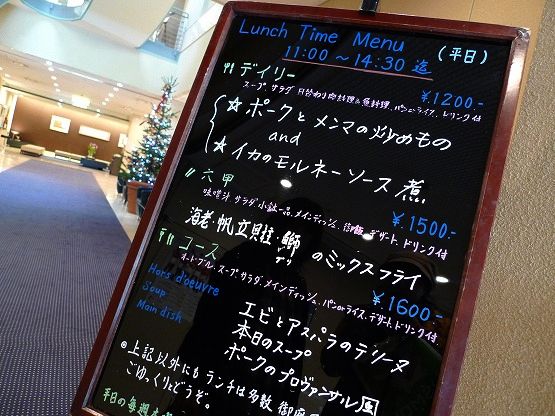 Lunch Time Menu (平日)
11:00 ～ 14:30 迄
デイリー ¥.1200.-
スープ、サラダ、日替わり肉料理&魚料理、パンorライス、ドリンク付
☆ポークとメンマの炒めもの
and
☆イカのモルネーソース煮
六甲 ¥.1500.-
味噌汁、サラダ、小鉢一品、メインディッシュ、御飯、デザート、ドリンク付
海老・帆立貝柱・鰤のミックスフライ
ブリ
コース ¥.1600.-
オードブル、スープ、サラダ、メインディッシュ、パンorライス、デザート、ドリンク付
Hors d'oeuvre エビとアスパラのテリーヌ
Soup 本日のスープ
Main dish ポークのプロヴァンサル風
◎上記以外にもランチは多数
ごゆっくりとどうぞ。
平日の毎週